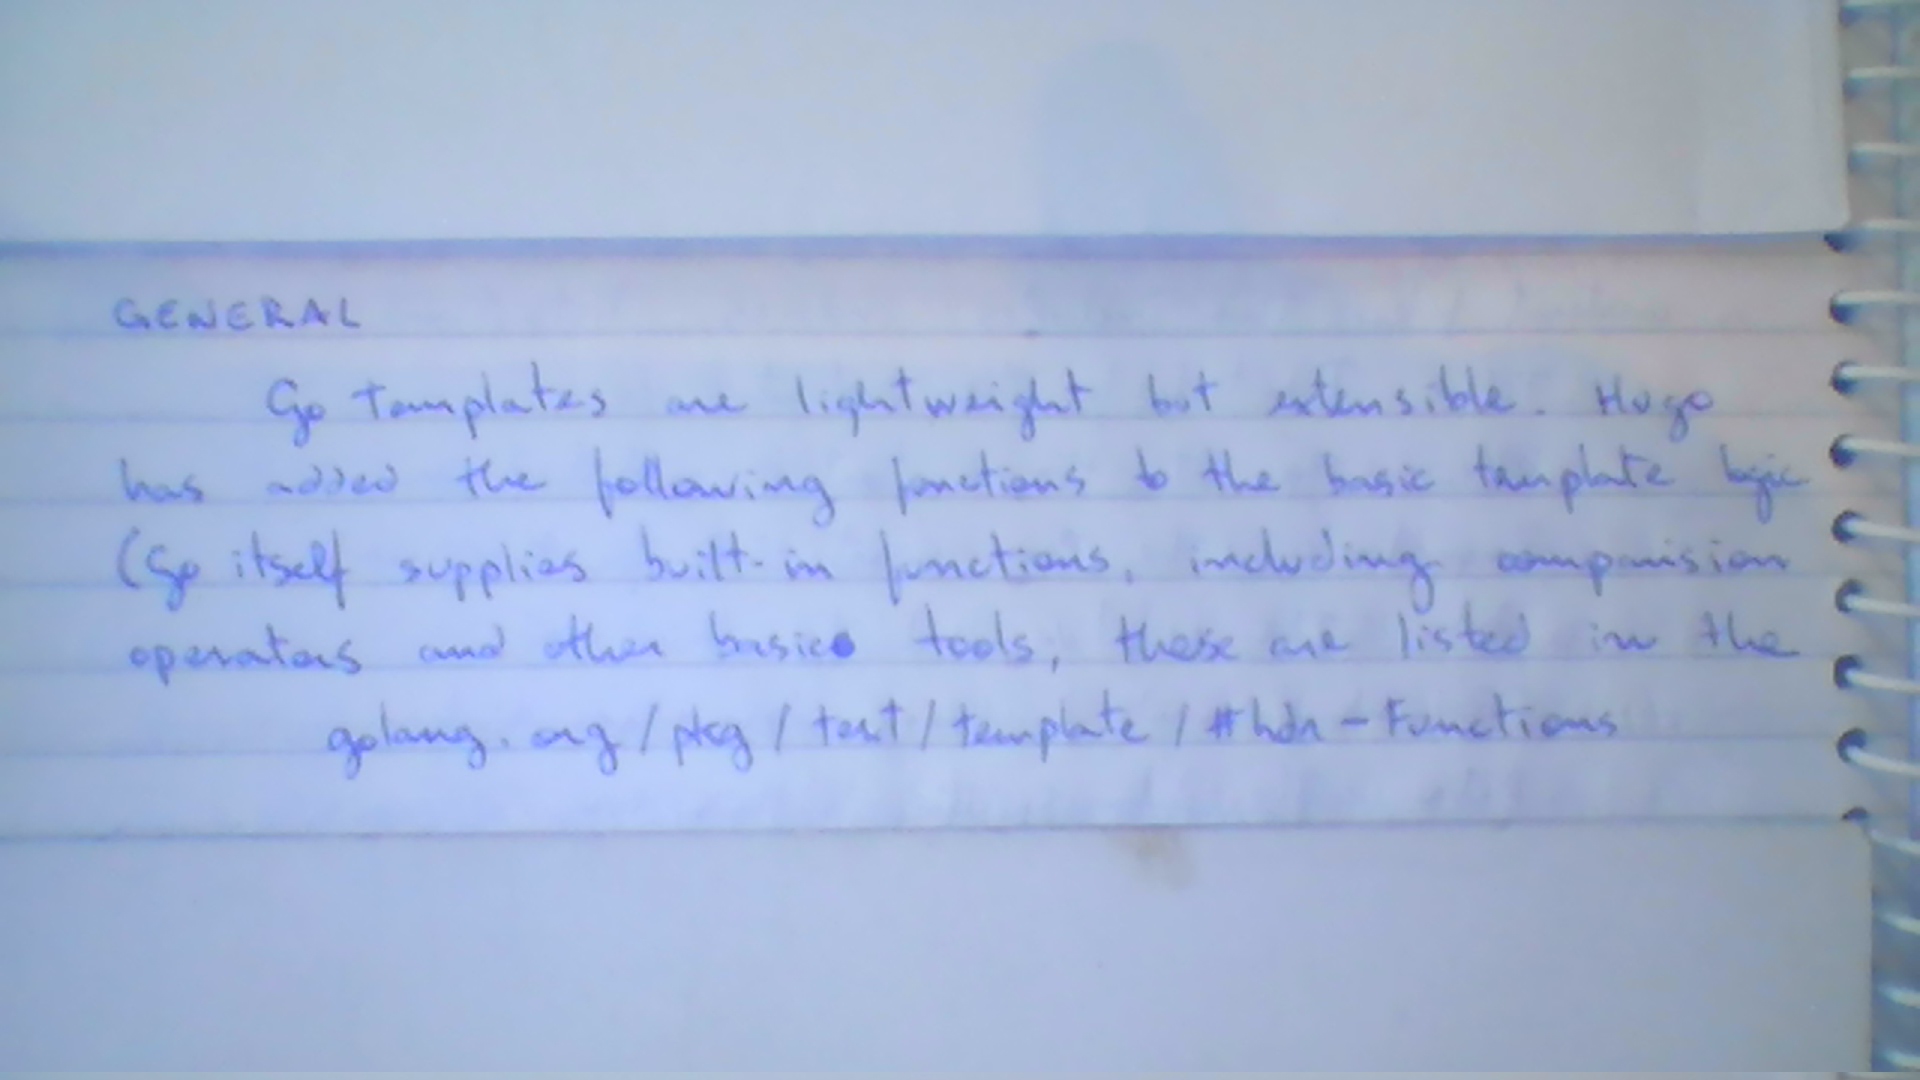 GENERAL
Go Templates are lightweight but extensible. Hugo
has added the following functions to the basic template logic
(Go itself supplies built-in functions, including comparision
operators and other basic tools, these are listed in the
golang.org/pkg/text/template/#hdr-Functions